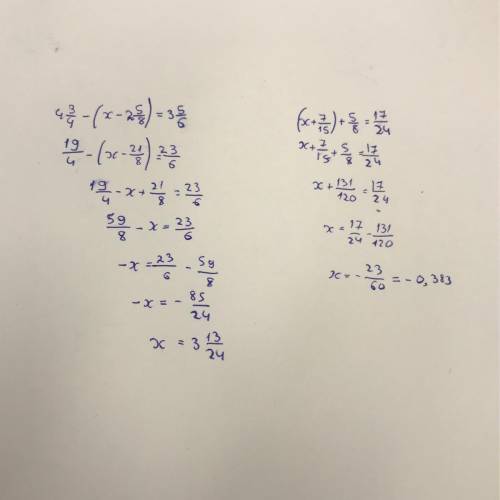 4 3/4 - (x - 2 5/8) = 3 5/6
19/4 - (x - 21/8) = 23/6
19/4 - x + 21/8 = 23/6
59/8 - x = 23/6
-x = 23/6 - 59/8
-x = - 85/24
x = 3 13/24
(x + 7/15) + 5/8 = 17/24
x + 7/15 + 5/8 = 17/24
x + 131/120 = 17/24
x = 17/24 - 131/120
x = - 23/60 = - 0,383